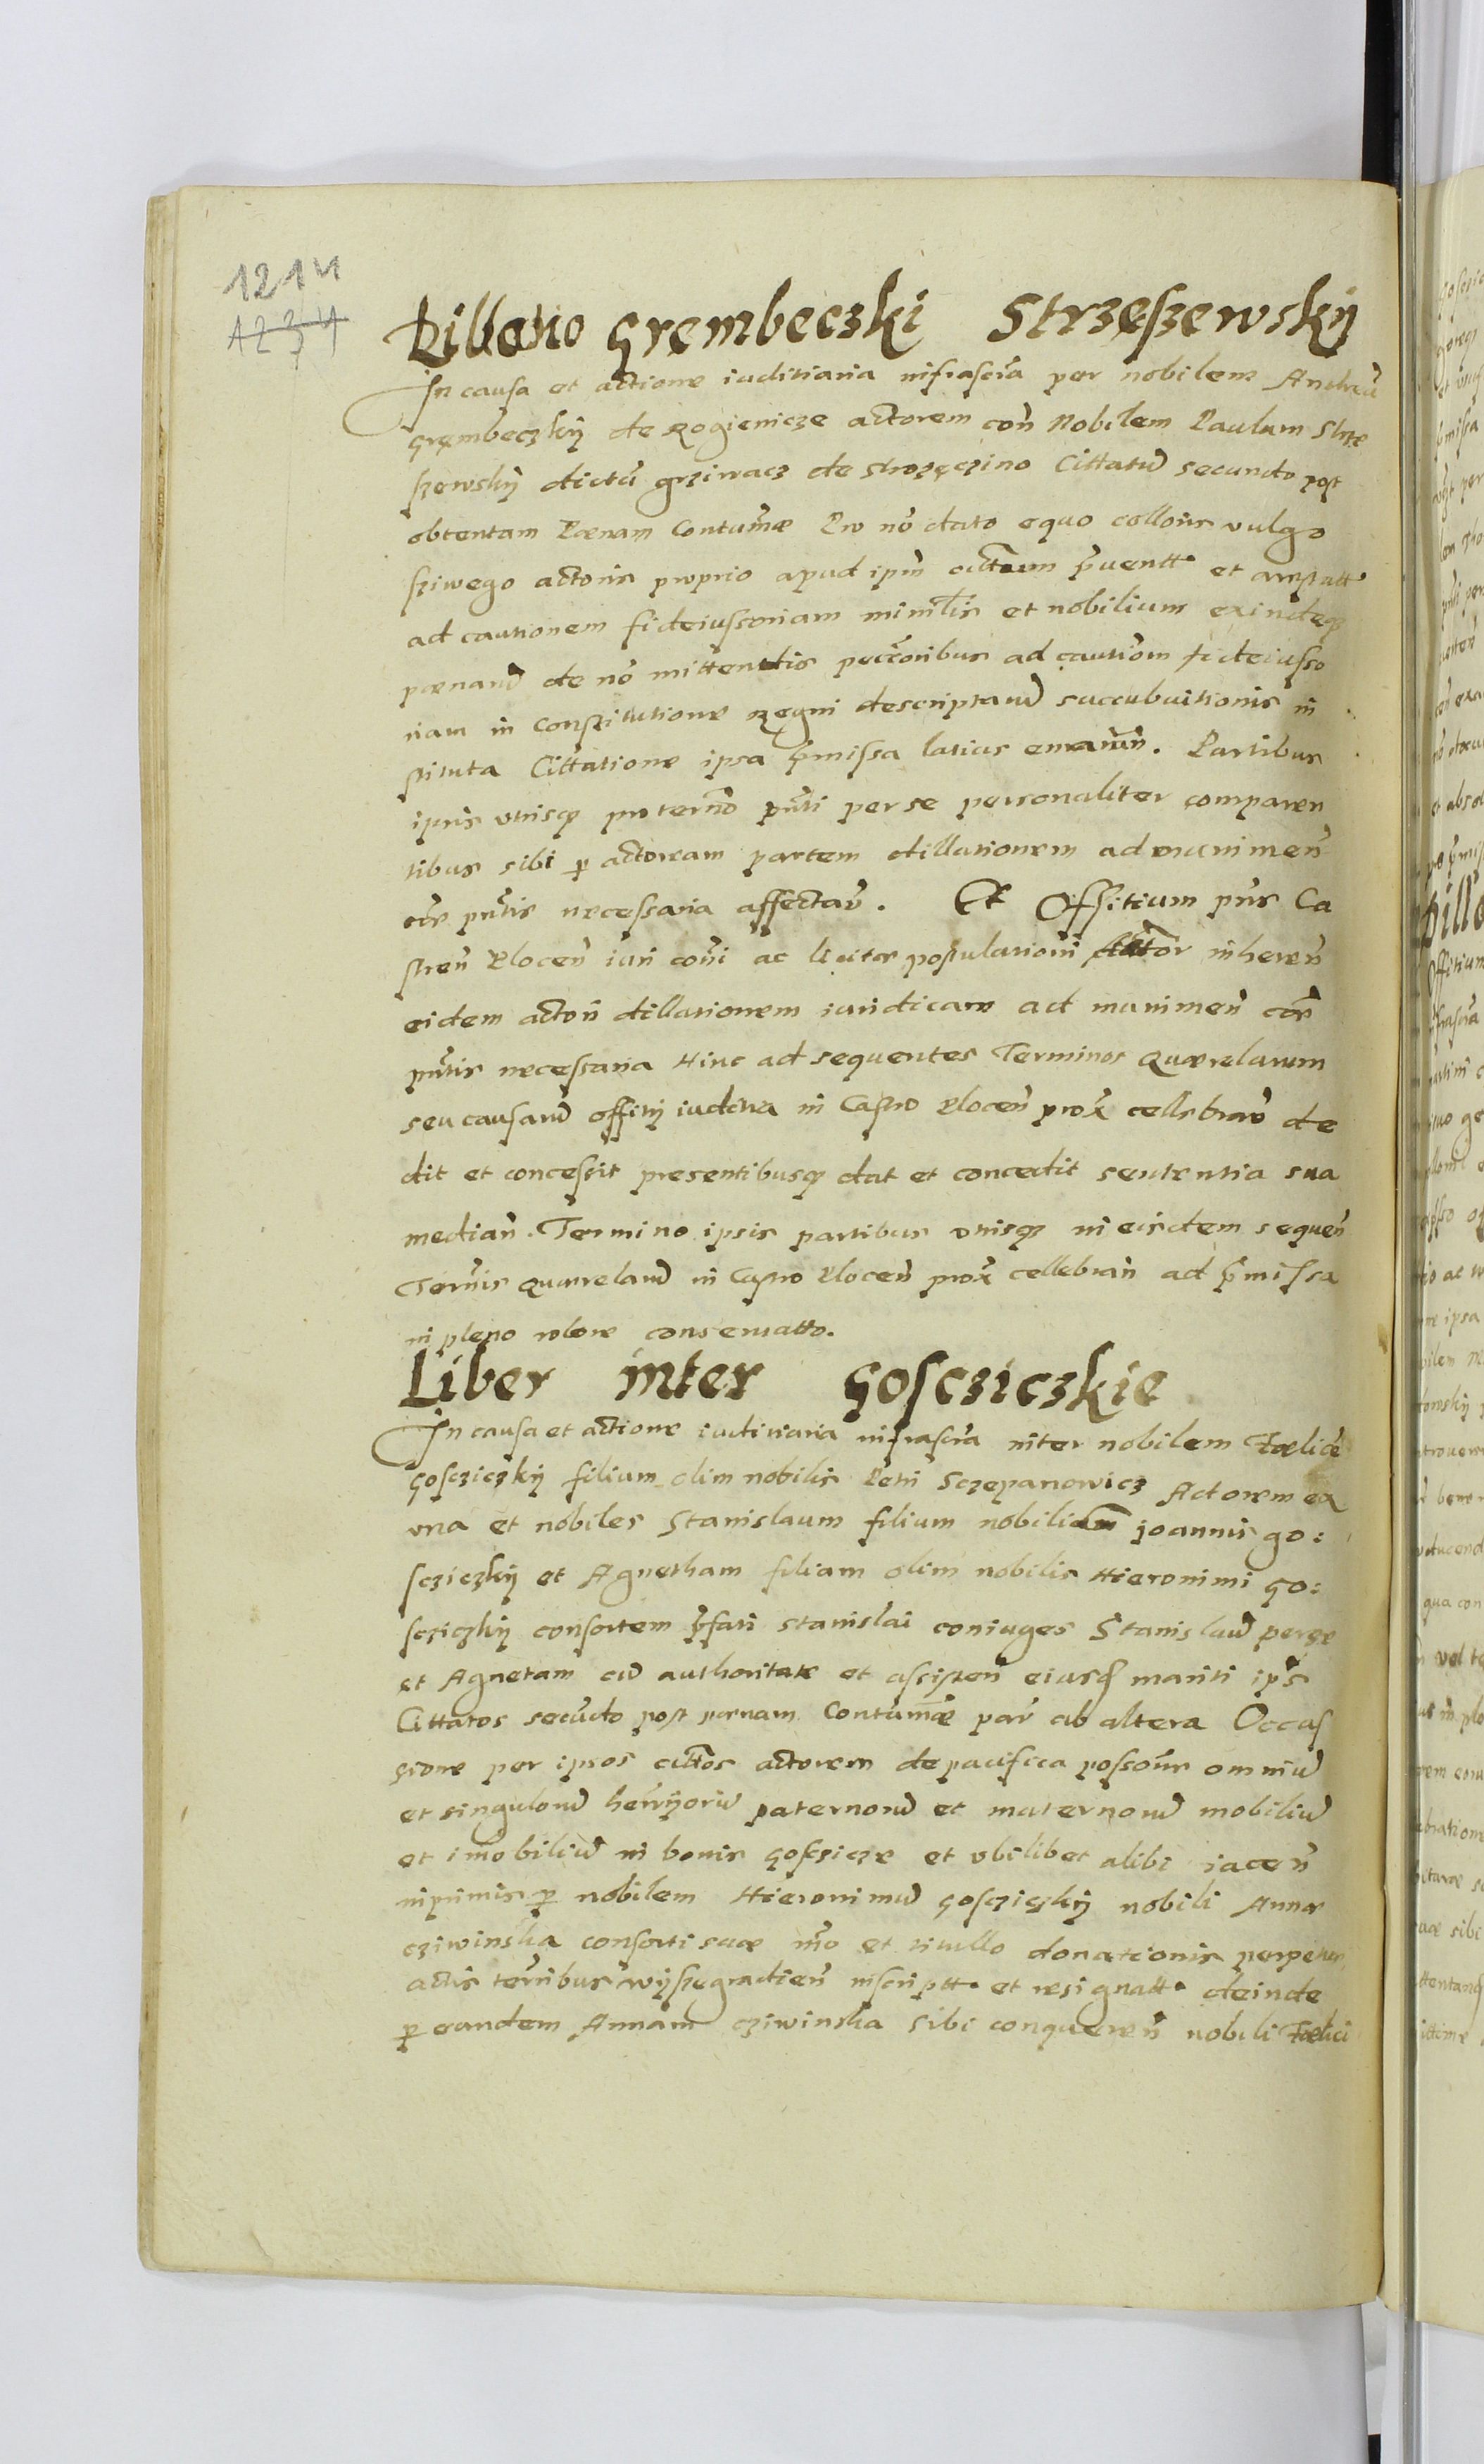 1214
1234
Dillatio Grembeczki Strzeszewskÿ
In causa et actione iuditiaria infrascra per nobilem Andreã
Grembeczkÿ de Rogienicze actorem con Nobilem Paulum Strze
szewskÿ dictũ grziwacz de Strozęczino Cittatũ secundo post
obtentam Pœnam Contumæ Pro nõ dato equo colloris vulgo
sziwego actoris proprio apud ipm cittatum pruentt et arestatt
ad cautionem fideiussoriam et nobilium exindeq
pœnarũ de nõ mittendis ad cautiom fideiusso
riam in Constitutione Regni descriptarũ succubuitionis in
stituta Cittatione ipsa pmissa latius enarañ. Partibus
ipsis utrisq pro termõ pñti per se personaliter comparen
tibus sibi p actoream partem dillationem ad munimeñ
necessaria affectañ. Et Offitium pñs Ca
streñ Ploceñ iuri coñi ac licitæ postulationi inhereñ
eidem actori dillationem iuridicam ad munimeñ
necessaria Hinc ad sequentes Terminos Quærelarum
seu causarũ offitÿ in Castro Ploceñ prox de
dit et concessit presentibusq dat et concedit sententia sua
mediañ. Termino ipsis partibus utrisq in eisdem sequeñ
Termis Quærelarũ in Castro Ploceñ prox cellebrañ ad pmissa
in pleno robore conservatto.
Liber inter Gosczickie
In causa et actione iuditiaria infrascra inter nobilem Fœlicẽ
Gosczickÿ filium olim nobilis Petri Sczepanowicz Actorem ex
una et nobiles Stanislaum filium Joannis Go:
scziczkÿ et Agnetham filiam olim nobilis Hieronimi Go:
scziczkÿ consortem pfati Stanislai coniuges Stanislaũ per se
et Agnetam cũ authoritate et assisteñ eiusd mariti ips
Cittatos secũdo post pœnam Contumæ par ab altera Occas
sione per ipsos cittos actorem de pacifica possoñs omniũ
et singulorũ paternorũ et maternorũ mobiliũ
et imobiliũ in bonis Gosczicze et ubilibet alibi iaceñ
inprimis p nobilem Hieronimũ Gosczickÿ nobili Annæ
cziwinska consorti suæ et titullo donationis perpetuæ
actis terribus wÿszegradieñ inscriptt et resignatt deinde
p eandem Annam cziwinska sibi conquereñ nobili Fœlici